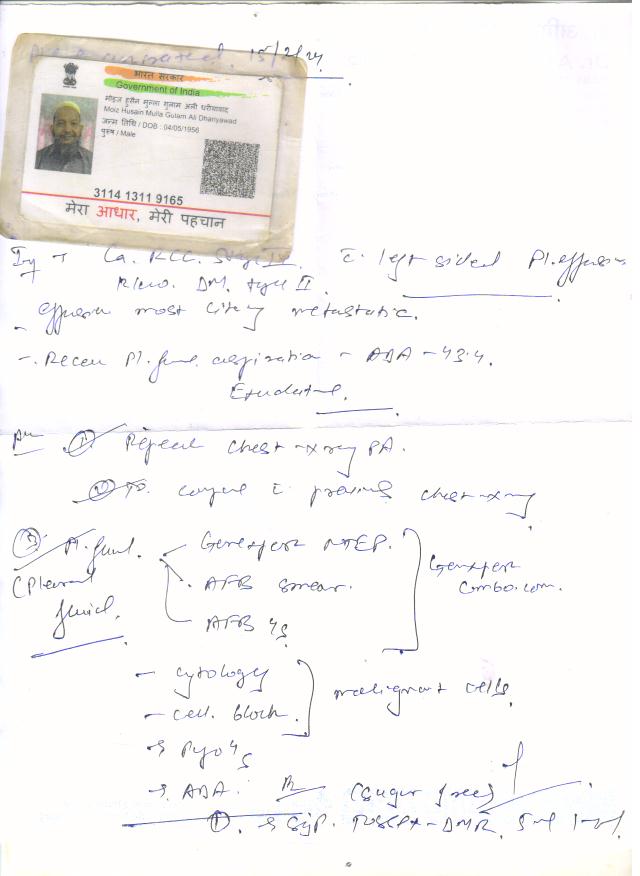 15/2/24
भारत सरकार
Government of India
मोइज हुसैन मुल्ला गुलाम अली धरीयावाद
Moiz Husain Mulla Gulam Ali Dhariyawad
जन्म तिथि / DOB : 04/05/1956
पुरुष / Male
3114 1311 9165
मेरा आधार, मेरी पहचान
Ca. RCC. Stage IV c left sided Pl. effusion
K/c/o. DM. type II
- effusion most likely metastatic.
- Recent Pl. fluid aspiration - ADA - 43.4.
Exudative.
Adv ① Repeat chest-xray PA.
② To compare c previous chest-xray
③ Pl. fluid. Genexpert NTEP.
(Pleural fluid. AFB smear. Genexpert combo.com.
AFB c/s
- cytology malignant cells.
- cell block.
Pyo c/s
ADA. (Sugar free)
①. Syp. DMR, 5ml